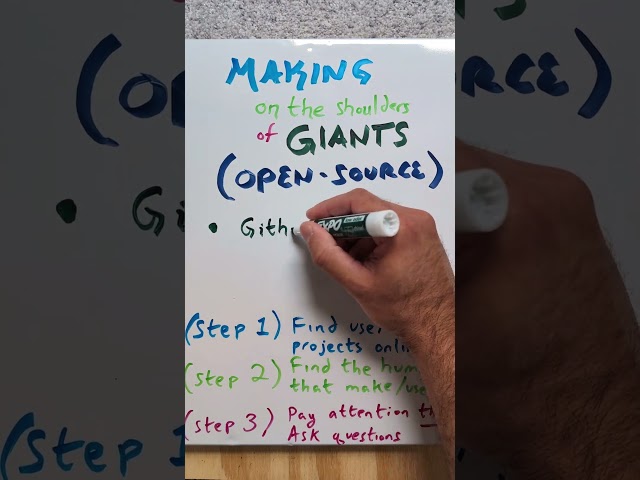 MAKING
on the shoulders
of GIANTS
(OPEN-SOURCE)
• Gith
EXPO
(Step 1) Find
projects
(step 2) Find the
that make/use
(step 3) Pay attention
Ask questions